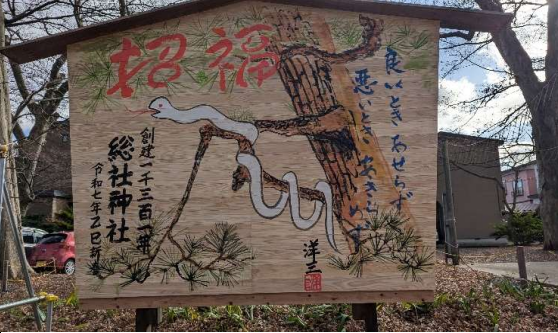 招福
良いとき あせらず
悪いとき あきらめず
創建一千三百一年
総社神社
令和七年乙巳祈安
洋三